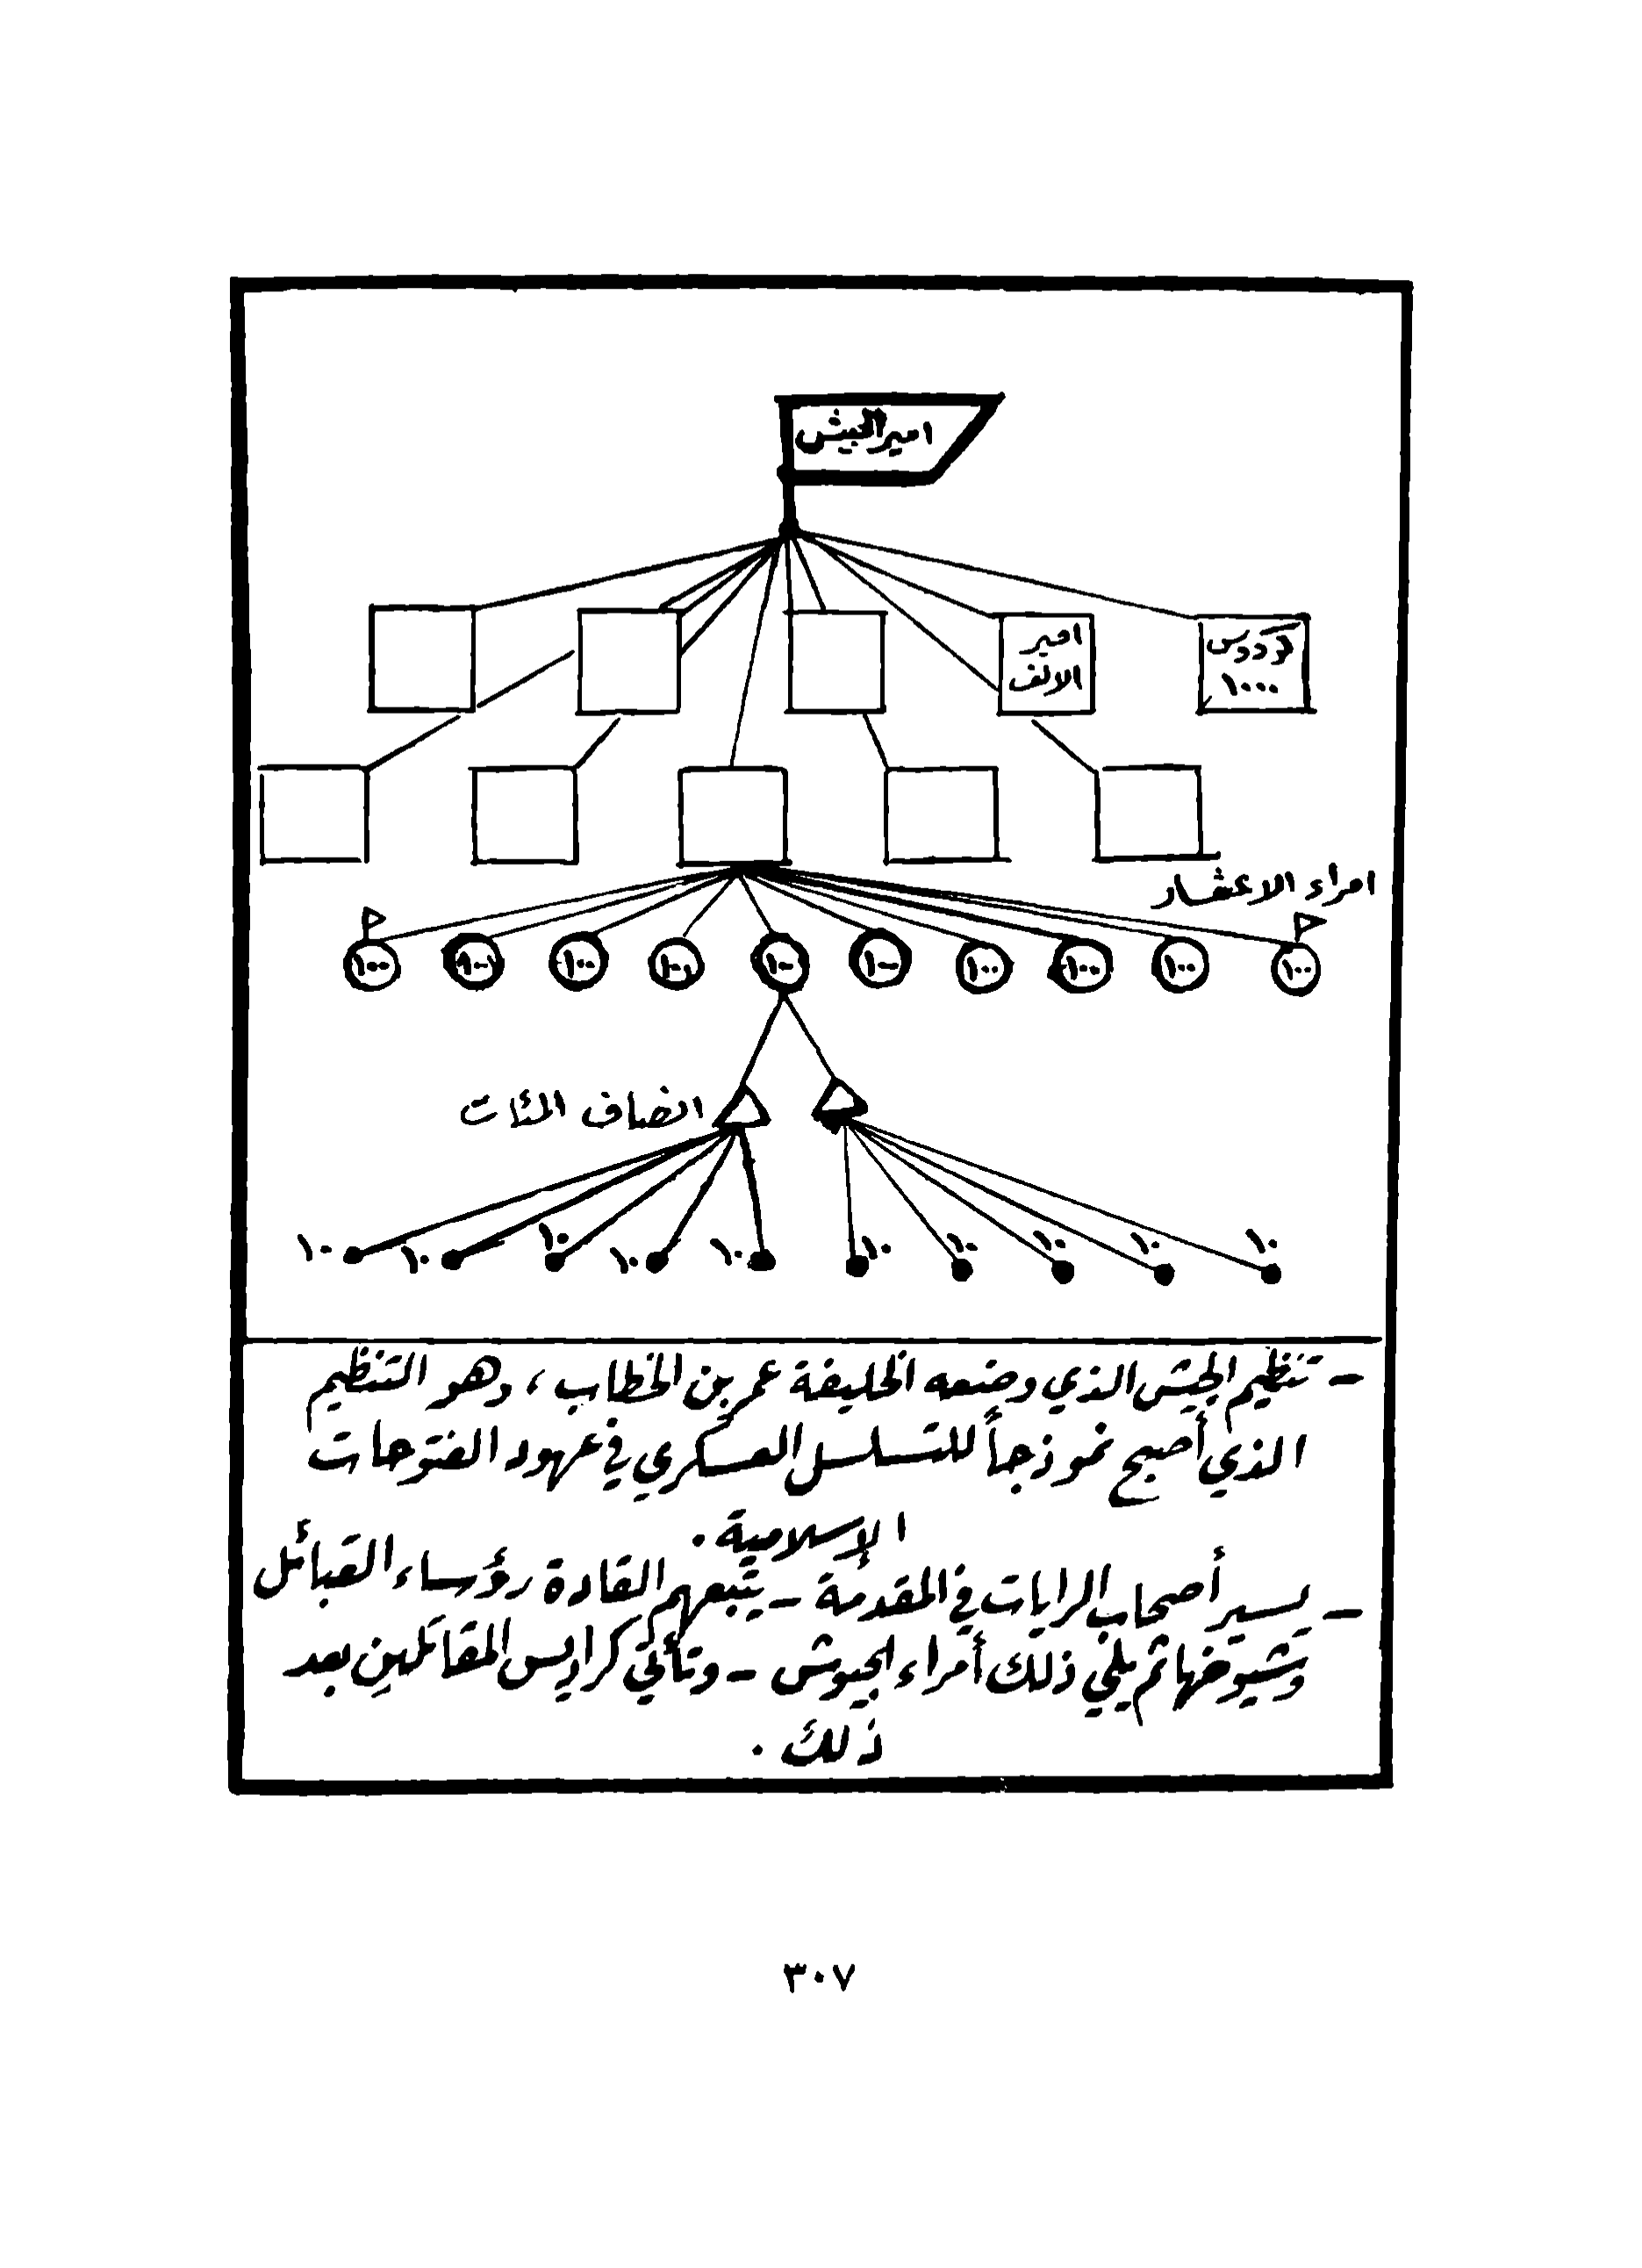 امير الجيش
كردوس
١٠٠٠
امير
الالف
امراء الاعشار
١٠٠ ١٠٠ ١٠٠ ١٠٠ ١٠٠ ١٠٠ ١٠٠ ١٠٠ ١٠٠ ١٠٠
انصاف المئات
١٠ ١٠ ١٠ ١٠ ١٠ ١٠ ١٠ ١٠ ١٠ ١٠
- تنظيم الجيش الذي وضعه الخليفة عمر بن الخطاب ، وهو التنظيم
الذي أصبح نموذجاً للتسلسل العسكري في عهود الفتوحات
الإسلامية .
- يسير أصحاب الرايات في المقدمة - يتبعهم القادة رؤساء القبائل
وشيوخها ثم يلي ذلك أمراء الجيوش - وتأتي كراديس المقاتلين بعد
ذلك .
٣٠٧